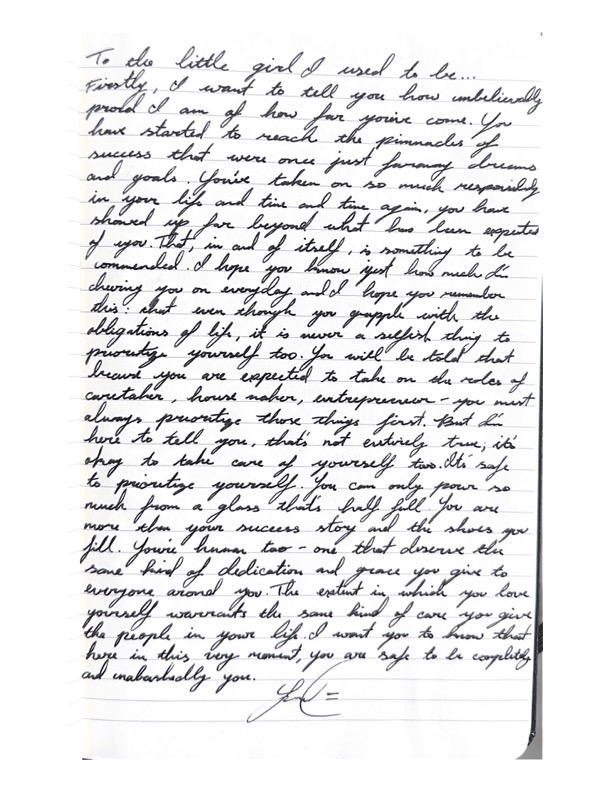 To the little girl I used to be...
Firstly, I want to tell you how unbelievably
proud I am of how far you've come. You
have started to reach the pinnacles of
success that were once just faraway dreams
and goals. You've taken on so much responsibility
in your life and time and time again, you have
showed up far beyond what has been expected
of you. That, in and of itself, is something to be
commended. I hope you know just how much I'm
cheering you on everyday and I hope you remember
this: that even though you grapple with the
obligations of life, it is never a selfish thing to
prioritize yourself too. You will be told that
because you are expected to take on the roles of
caretaker, house maker, entrepreneur - you must
always prioritize those things first. But I'm
here to tell you, that's not entirely true; it's
okay to take care of yourself too. It's safe
to prioritize yourself. You can only pour so
much from a glass that's half full. You are
more than your success story and the shoes you
fill. You're human too - one that deserve the
same kind of dedication and grace you give to
everyone around you. The extent in which you love
yourself warrants the same kind of care you give
the people in your life. I want you to know that
here in this very moment, you are safe to be completely
and unabashedly you.